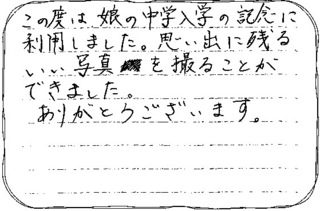 この度は娘の中学入学の記念に
利用しました。思い出に残る
いい写真を撮ることが
できました。
ありがとうございます。